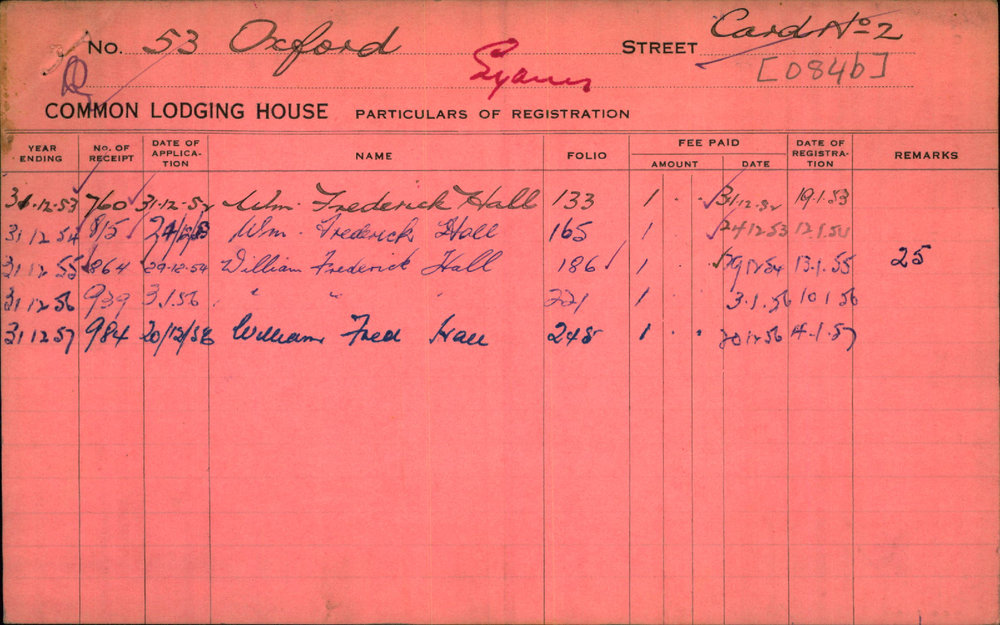 Card No 2
No. 53 Oxford STREET
[084b]
COMMON LODGING HOUSE PARTICULARS OF REGISTRATION
YEAR ENDING No. OF RECEIPT DATE OF APPLICA- TION NAME FOLIO FEE PAID AMOUNT DATE DATE OF REGISTRA- TION REMARKS
31.12.53 760 31.12.52 Wm. Frederick Hall 133 1 . . 31.12.52 19.1.53
31 12 54 815 24/12/53 Wm. Frederick Hall 165 1 . . 24 12 53 12.1.54
31 12 55 864 29.12.54 William Frederick Hall 186 1 . . 29 12 54 13.1.55 25
31 12 56 939 3.1.56 " " " 221 1 . . 3.1.56 10 1 56
31 12 57 984 20/12/56 William Fred Hall 245 1 . . 20 12 56 14.1.57